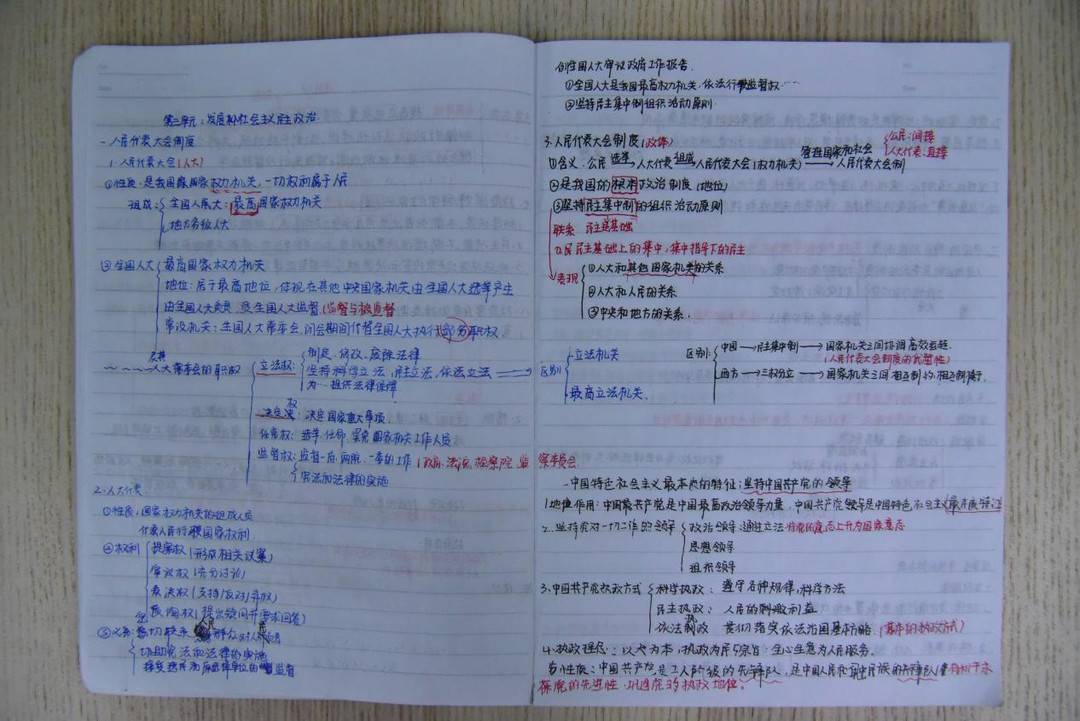 第三单元：发展社会主义民主政治
一人民代表大会制度
1. 人民代表大会(人大)
①性质：是我国国家权力机关，一切权利属于人民
组成：全国人大：最高国家权力机关
地方各级人大
②全国人大 最高国家权力机关
地位：居于最高地位，体现在其他中央国家机关由全国人大选举产生
由全国人大负责，受全国人大监督(监督与被监督
常设机关：全国人大常委会，闭会期间代替全国人大执行部分职权
人大常委会的职权 立法权：制定、修改、废除法律
坚持科学立法，民主立法，依法立法
为…提供法律保障
决定权：决定国家重大事项
任免权：选举、任命、罢免国家机关工作人员
监督权：监督一府、两院、一委的工作(政府、法院、检察院、监察委员会
宪法和法律的实施
2. 人大代表
①性质：国家权力机关的组成人员
代表人民行使国家权利
②权利 提案权(形成相关议案)
审议权(充分讨论)
表决权(支持/反对/弃权)
质询权(提出疑问并要求回答)
③义务：密切联系群众
协助宪法和法律的实施
接受选民和原选举单位的监督
例:全国人大审议政府工作报告
①全国人大是我国最高权力机关，依法行监督权……
②坚持民主集中制组织活动原则
3. 人民代表大会制度(政体)
①含义：公民 选举 人大代表 组成 人民代表大会(权力机关) 管理国家和社会 人民代表大会制
公民：间接
人大代表：直接
②是我国的根本政治制度(地位)
③坚持民主集中制的组织活动原则
联系 民主是基础
民主基础上的集中，集中指导下的民主
表现 ①人大和其他国家机关的关系
②人大和人民的关系
③中央和地方的关系.
区别 立法机关
最高立法机关.
区别: 中国→民主集中制→国家机关之间协调高效运转.
(人民代表大会制度的优越性)
西方→三权分立→国家机关之间相互制约，相互制衡.
一中国特色社会主义最本质的特征：坚持中国共产党的领导
1.地位作用：中国共产党是中国最高政治领导力量，中国共产党领导是中国特色社会主义最本质特征
2.坚持党对一切工作的领导 政治领导：通过立法 将党的意志上升为国家意志
思想领导
组织领导
3.中国共产党执政方式 科学执政：遵守各种规律，科学方法
民主执政：人民的利益
依法执政 贯彻落实依法治国基本方略(基本的执政方式)
4.执政理念：以人为本，执政为民 宗旨：全心全意为人民服务.
5.性质：中国共产党是工人阶级的先锋队，是中国人民和中华民族的先锋队
保党的先进性 巩固党的执政地位.